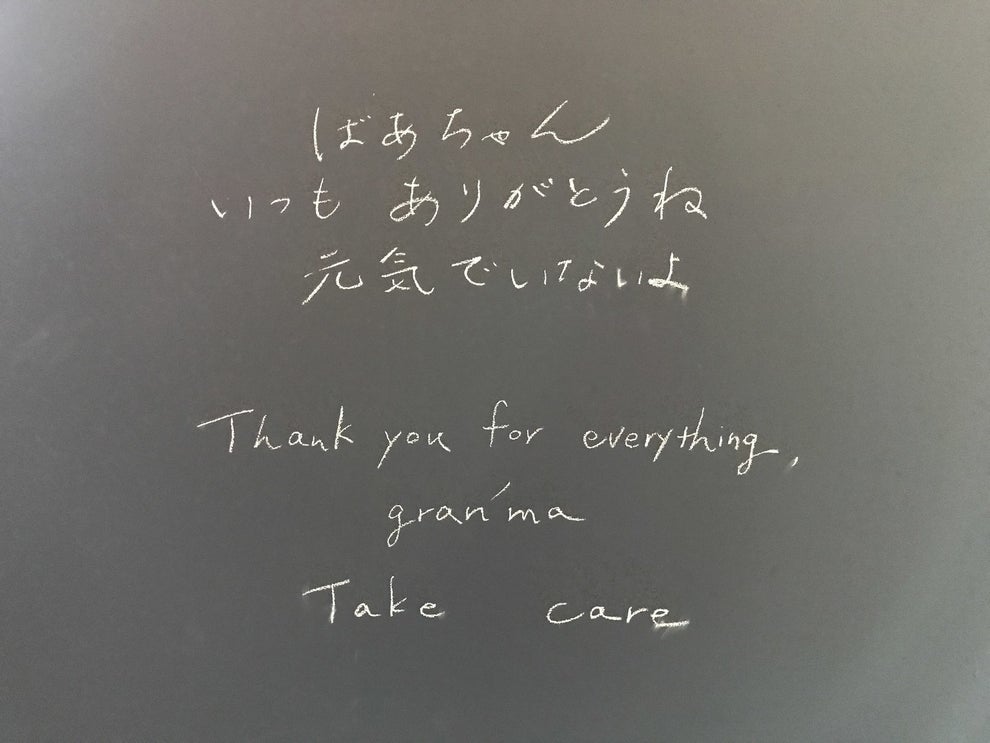 ばあちゃん
いつも ありがとうね
元気でいけないよ
Thank you for everything,
gran'ma
Take care